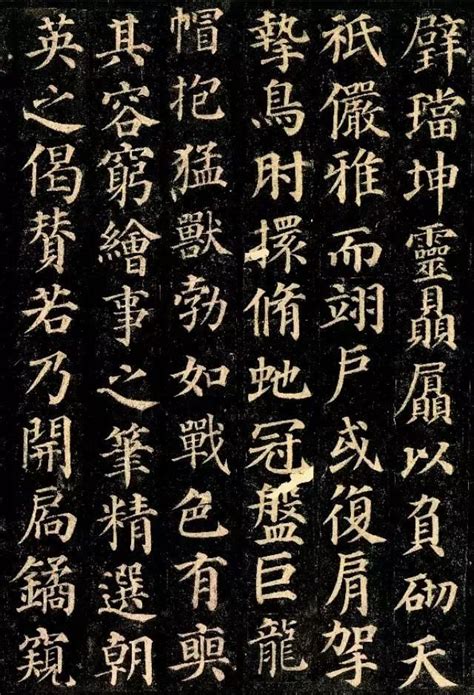 璧璫坤靈贔屭以負砌天
祇儼雅而翊戶或復肩拏
摯鳥肘擐脩虵冠盤巨龍
帽抱猛獸勃如戰色有奭
其容窮繪事之筆精選朝
英之偈賛若乃開扃鐍窺